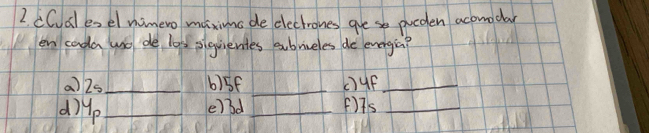 2. ¿Cuál es el número máximo de electrones que se pueden acomodar
en cada uno de los siguientes subniveles de energía?
a) 2s ______ b) 5f ______ c) 4f ______
d) 4p ______ e) 3d ______ f) 7s ______